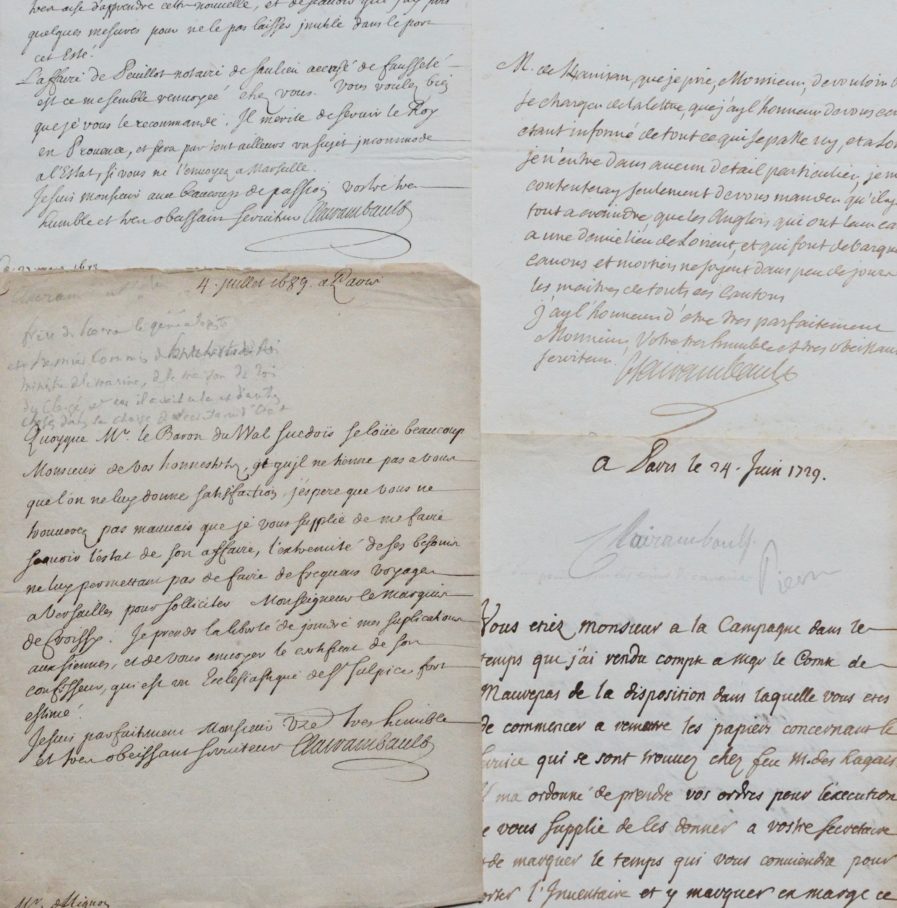 bien aise d'apprendre cette nouvelle, et de sçavoir que j'ay pris
quelques mesures pour ne le pas laisser inutile dans le port
cet Esté.
L'affaire de Peuillot notaire de Saulieu accusé de fausseté
est ce me semble renvoyée chez vous. Vous voulez bien
que je vous le recommande. Il merite de servir le Roy
en Provence, et sera par tout ailleurs un sujet incommode
a l'Estat, si vous ne l'envoyez a Marseille.
Je suis monsieur avec beaucoup de passion vostre tres
humble et tres obeissant serviteur Clairambault
4. juillet 1689. a Paris
frere de Pierre le généalogiste
et premier Commis
ministre de la marine, de la maison du Roi
du Clergé
Quoyque Mr. le Baron du Wal suedois se loüe beaucoup
Monsieur de vos honnestetez, et qu'il ne tienne pas a vous
que l'on ne luy donne satisfaction, j'espere que vous ne
trouverez pas mauvais que je vous supplie de me faire
sçavoir l'estat de son affaire, l'extremité de ses besoins
ne luy permettant pas de faire de frequens voyages
a Versailles pour solliciter Monseigneur le marquis
de Croissy. Je prends la liberté de joindre mes suplications
aux siennes, et de vous envoyer le certificat de son
confesseur, qui est un Ecclesiastique de St. Sulpice fort
estimé.
Je suis parfaitement Monsieur Vre tres humble
et tres obeissant serviteur Clairambault
Mr. Mignon
que je prie, Monsieur, de vouloir
se charger de la lettre, que j'ay l'honneur de vous
etant informé de tout ce qui se passe icy, et a
je n'entre dans aucun detail particulier, je
contenteray seulement de vous mander qu'il y
tout a craindre que les Anglois, qui ont leur
a une demie lieu de Lorient, et qui font debarquer
canons et mortiers ne soyent dans peu de jours
les maitres de touts ces cantons
j'ay l'honneur d'etre tres parfaitement
Monsieur, Votre tres humble et tres obeissant
serviteur. Clairambault
a Paris le 24. Juin 1729.
Clairambault.
Pierre
Vous eriez monsieur a la Campagne dans le
temps que j'ai rendu compte a Mgr le Comte de
Maurepas de la disposition dans laquelle vous etes
de commencer a remettre les papiers concernant le
service qui se sont trouvez chez feu M. des Hagais
il ma ordonné de prendre vos ordres pour l'execution
je vous supplie de les donner a vostre secretaire
et de marquer le temps qui vous conviendra pour
porter l'Inventaire et y marquer en marge ce